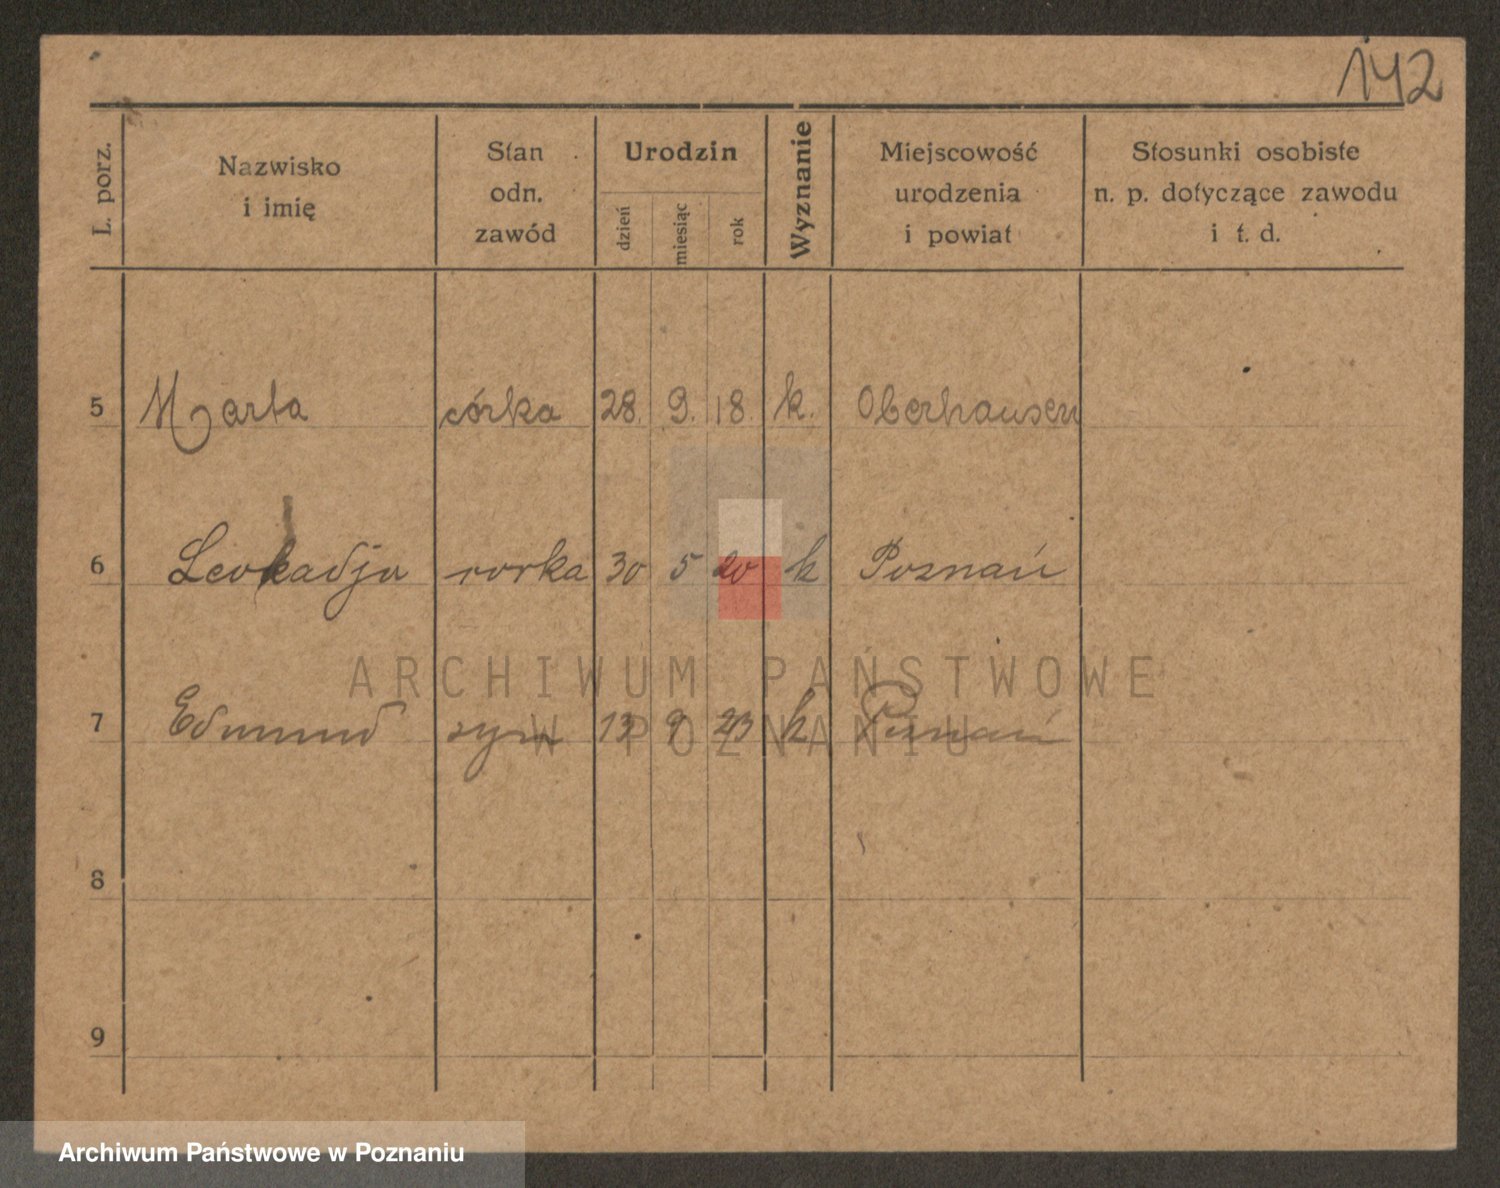 142
L. porz. Nazwisko i imię Stan odn. zawód Urodzin dzień miesiąc rok Wyznanie Miejscowość urodzenia i powiat Stosunki osobiste n. p. dotyczące zawodu i t. d.
5 Marta córka 28. 9. 18. k. Oberhausen
6 Leokadja corka 30 5 20 k Poznań
ARCHIWUM PAŃSTWOWE
7 Edmund syn 13 9 23 k Poznań
W POZNANIU
8
9
Archiwum Państwowe w Poznaniu